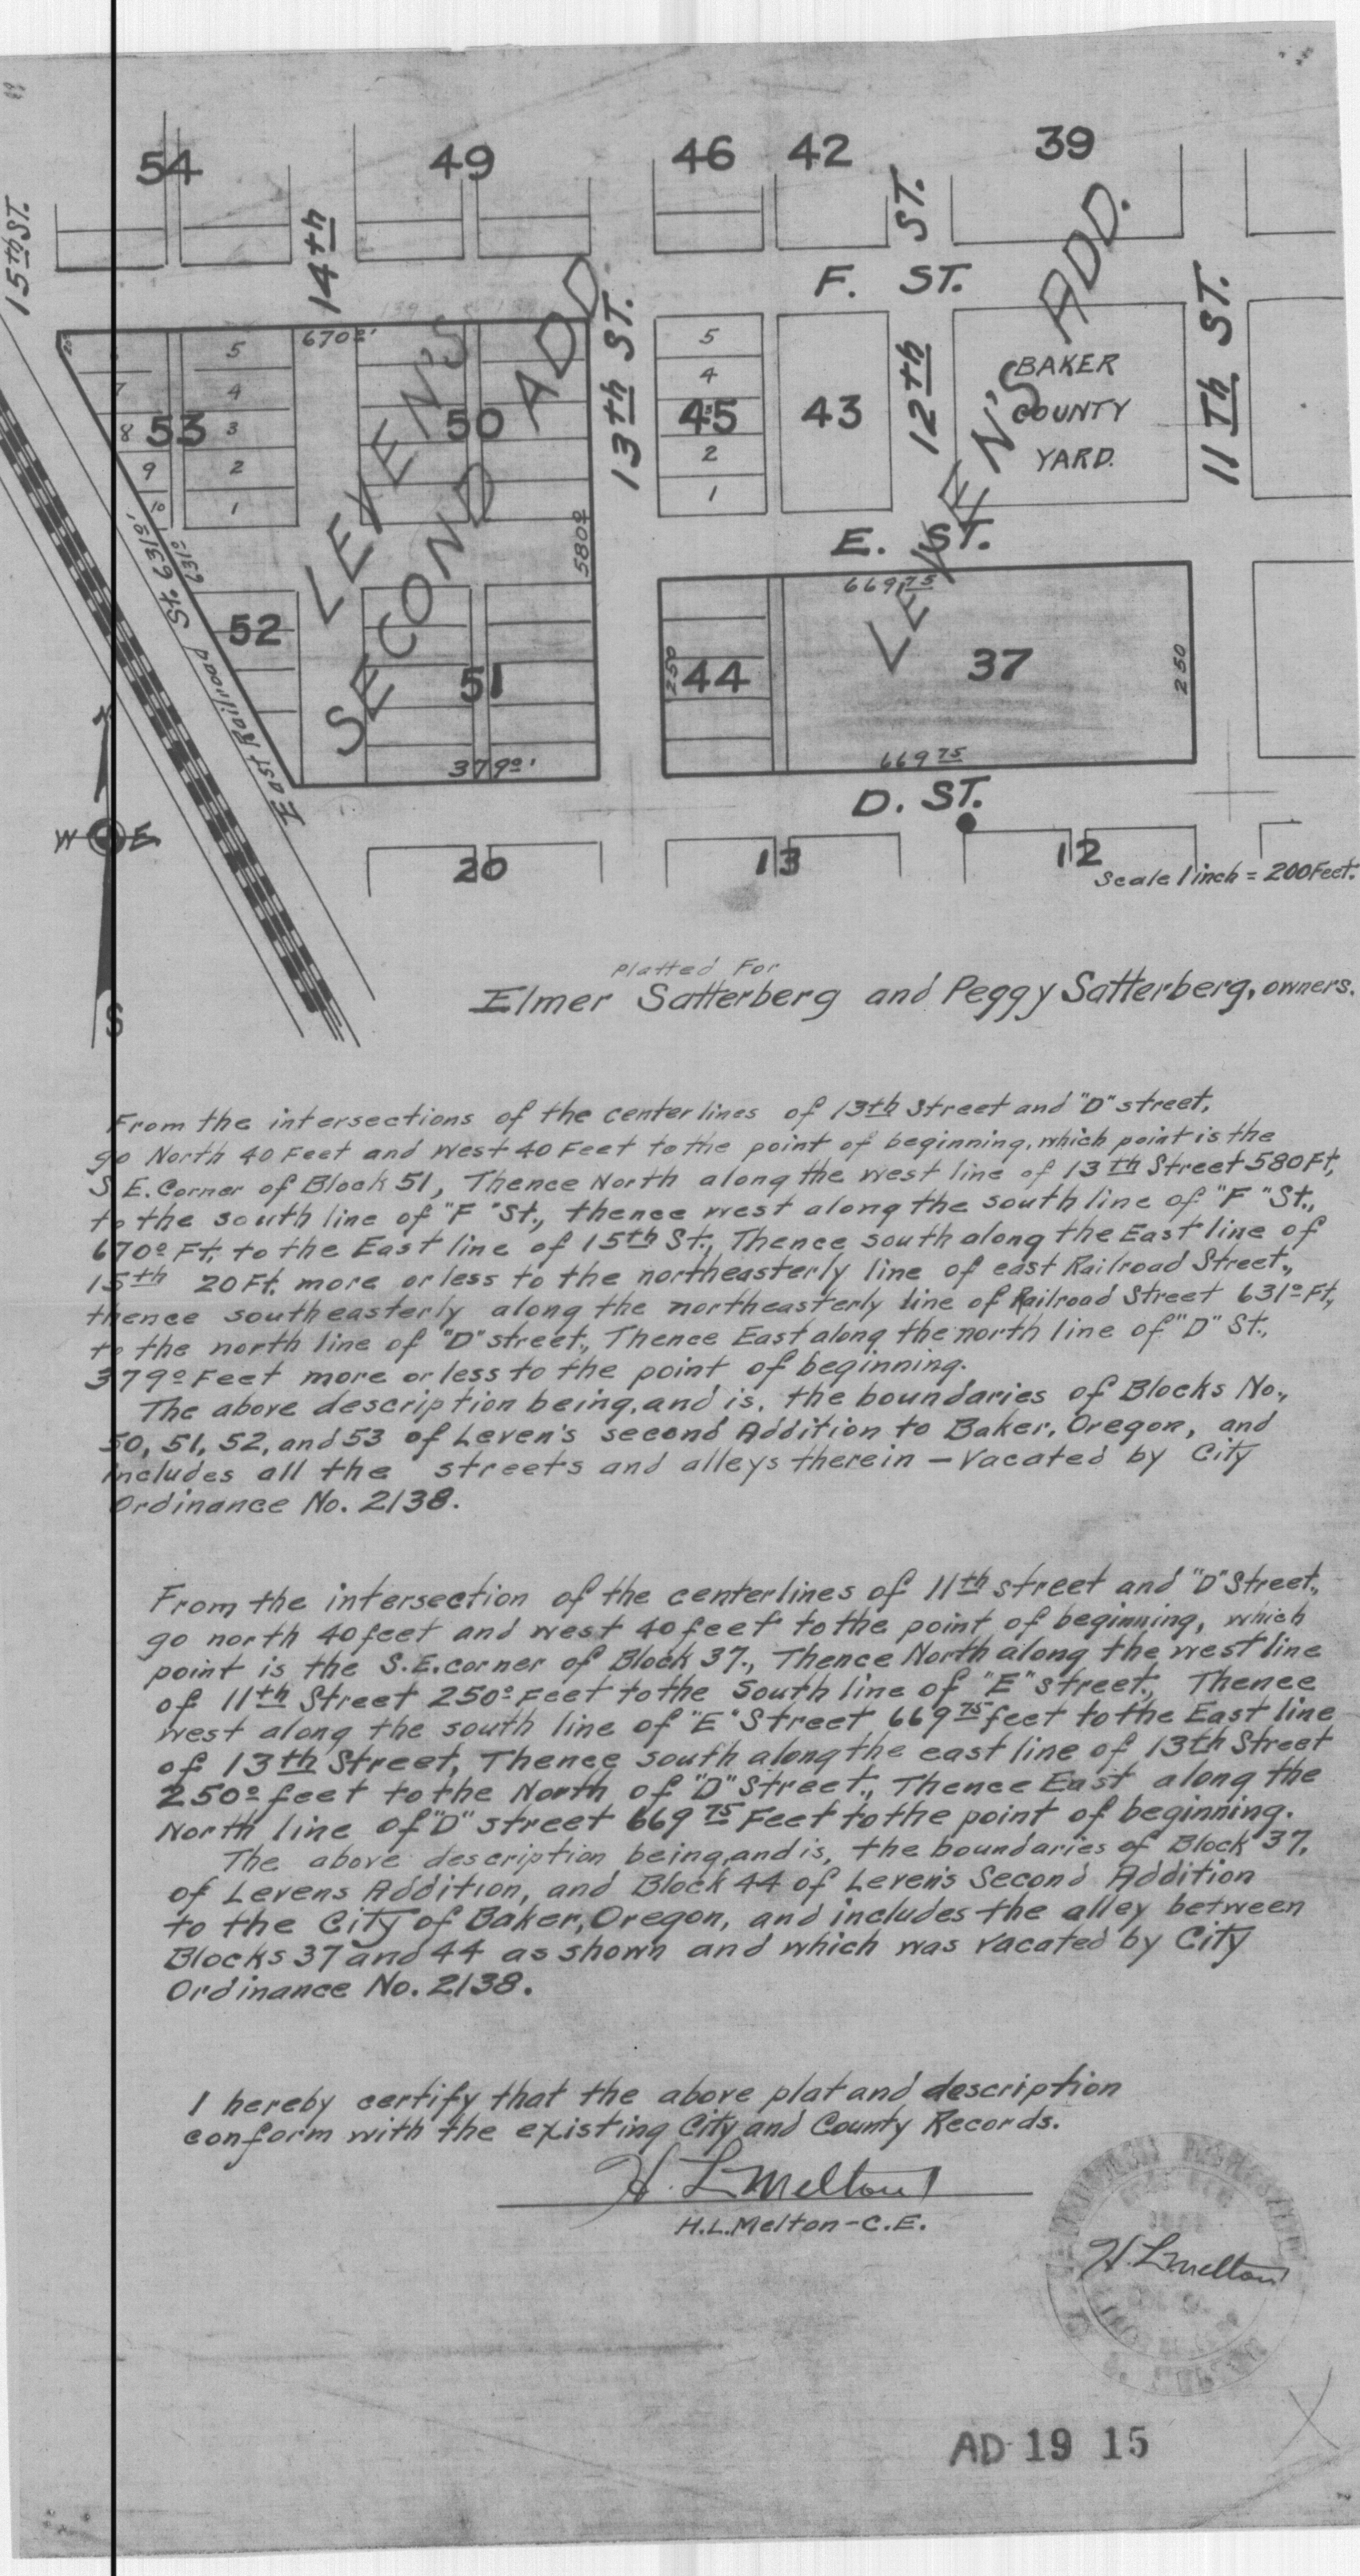 54 49 46 42 39
15th ST.
14th
13th ST.
12th ST.
11Th ST.
F. ST.
LEVEN'S
SECOND ADD.
LEVEN'S ADD.
670º'
5
4
3
2
1
7
8
9
10
53
50
5
4
45
3
2
1
43
BAKER
COUNTY
YARD.
580º
E. ST.
669 75
631º
East Railroad St. 631º'
52
51
250
44
37
250
379º'
669 75
D. ST.
W E
S
20 13 12
Scale 1 inch = 200 Feet.
Platted For
Elmer Satterberg and Peggy Satterberg, owners.
From the intersections of the center lines of 13th Street and "D" street,
go North 40 Feet and West 40 Feet to the point of beginning, which point is the
S E. Corner of Block 51, Thence North along the west line of 13th Street 580 Ft,
to the south line of "F" St., thence west along the south line of "F" St.,
670º Ft. to the East line of 15th St., Thence south along the East line of
15th 20 Ft. more or less to the northeasterly line of east Railroad Street.,
thence southeasterly along the northeasterly line of Railroad Street 631º Ft.,
to the north line of "D" street., Thence East along the north line of "D" St.,
379º Feet more or less to the point of beginning.
The above description being, and is, the boundaries of Blocks No.,
50, 51, 52, and 53 of Leven's second Addition to Baker, Oregon, and
includes all the streets and alleys therein — Vacated by City
Ordinance No. 2138.
From the intersection of the centerlines of 11th street and "D" Street.,
go north 40 feet and west 40 feet to the point of beginning, which
point is the S.E. corner of Block 37., Thence North along the west line
of 11th Street 250º Feet to the South line of "E" street., Thence
west along the south line of "E" Street 669 75 feet to the East line
of 13th Street, Thence south along the east line of 13th Street
250º feet to the North of "D" Street., Thence East along the
North line of "D" street 669 75 Feet to the point of beginning.
The above description being, and is, the boundaries of Block 37,
of Levens Addition, and Block 44 of Leven's Second Addition
to the City of Baker, Oregon, and includes the alley between
Blocks 37 and 44 as shown and which was vacated by City
Ordinance No. 2138.
I hereby certify that the above plat and description
conform with the existing City and County Records.
H. L. Melton
H.L. Melton - C.E.
H. L. Melton
AD 19 15